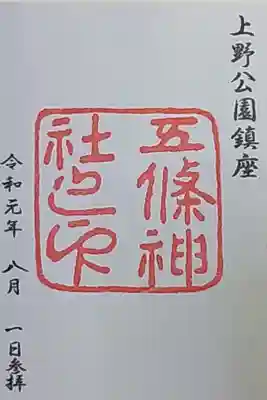 上野公園鎮座
五條神
社之印
令和元年 八月 一日参拝